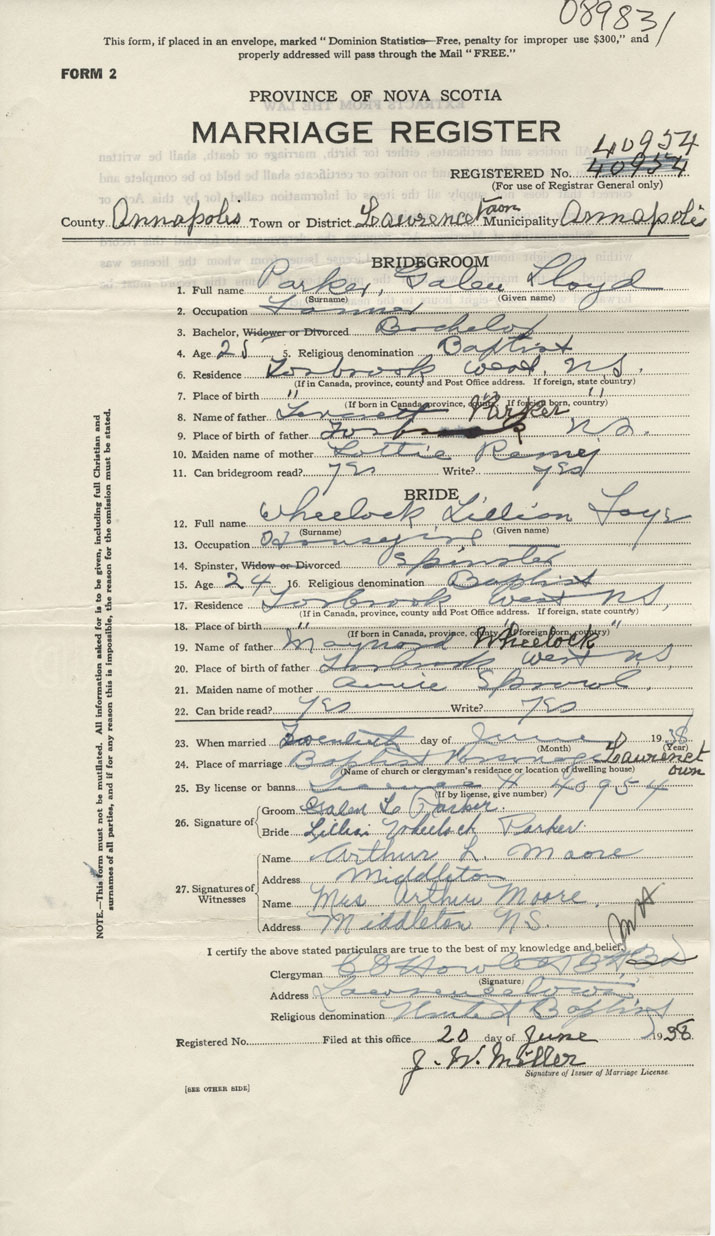 08983
This form, if placed in an envelope, marked "Dominion Statistics—Free, penalty for improper use $300," and
properly addressed will pass through the Mail "FREE."
FORM 2
PROVINCE OF NOVA SCOTIA
MARRIAGE REGISTER
40954
REGISTERED No. 40954
(For use of Registrar General only)
County Annapolis Town or District Lawrencetown Municipality Annapolis
BRIDEGROOM
1. Full name Parker, Galen Lloyd
(Surname) (Given name)
2. Occupation Farmer
3. Bachelor, Widower or Divorced Bachelor
4. Age 25 5. Religious denomination Baptist
6. Residence Torbrook West, N.S.
(If in Canada, province, county and Post Office address. If foreign, state country)
7. Place of birth " " "
(If born in Canada, province, county. If foreign born, country)
8. Name of father Parker
9. Place of birth of father N.S.
10. Maiden name of mother Lottie
11. Can bridegroom read? yes Write? yes
BRIDE
12. Full name Wheelock Lillian Faye
(Surname) (Given name)
13. Occupation
14. Spinster, Widow or Divorced Spinster
15. Age 24 16. Religious denomination Baptist
17. Residence Torbrook West N.S.
(If in Canada, province, county and Post Office address. If foreign, state country)
18. Place of birth " " "
(If born in Canada, province, county. If foreign born, country)
19. Name of father Maynard Wheelock
20. Place of birth of father Torbrook West N.S.
21. Maiden name of mother Annie Sproul
22. Can bride read? yes Write? yes
23. When married Twentieth day of June 1938
(Month) (Year)
24. Place of marriage Baptist Parsonage Lawrencetown
(Name of church or clergyman's residence or location of dwelling house)
25. By license or banns License # 40954
(If by license, give number)
26. Signature of
Groom Galen L Parker.
Bride Lillian Wheelock Parker
27. Signatures of Witnesses
Name Arthur L. Moore
Address Middleton
Name Mrs Arthur Moore.
Address Middleton N.S.
I certify the above stated particulars are true to the best of my knowledge and belief.
Clergyman
(Signature)
Address Lawrencetown
Religious denomination United Baptist
Registered No. Filed at this office 20 day of June 1938
J. W. Miller
Signature of Issuer of Marriage License
[SEE OTHER SIDE]
NOTE.—This form must not be mutilated. All information asked for is to be given, including full Christian and
surnames of all parties, and if for any reason this is impossible, the reason for the omission must be stated.